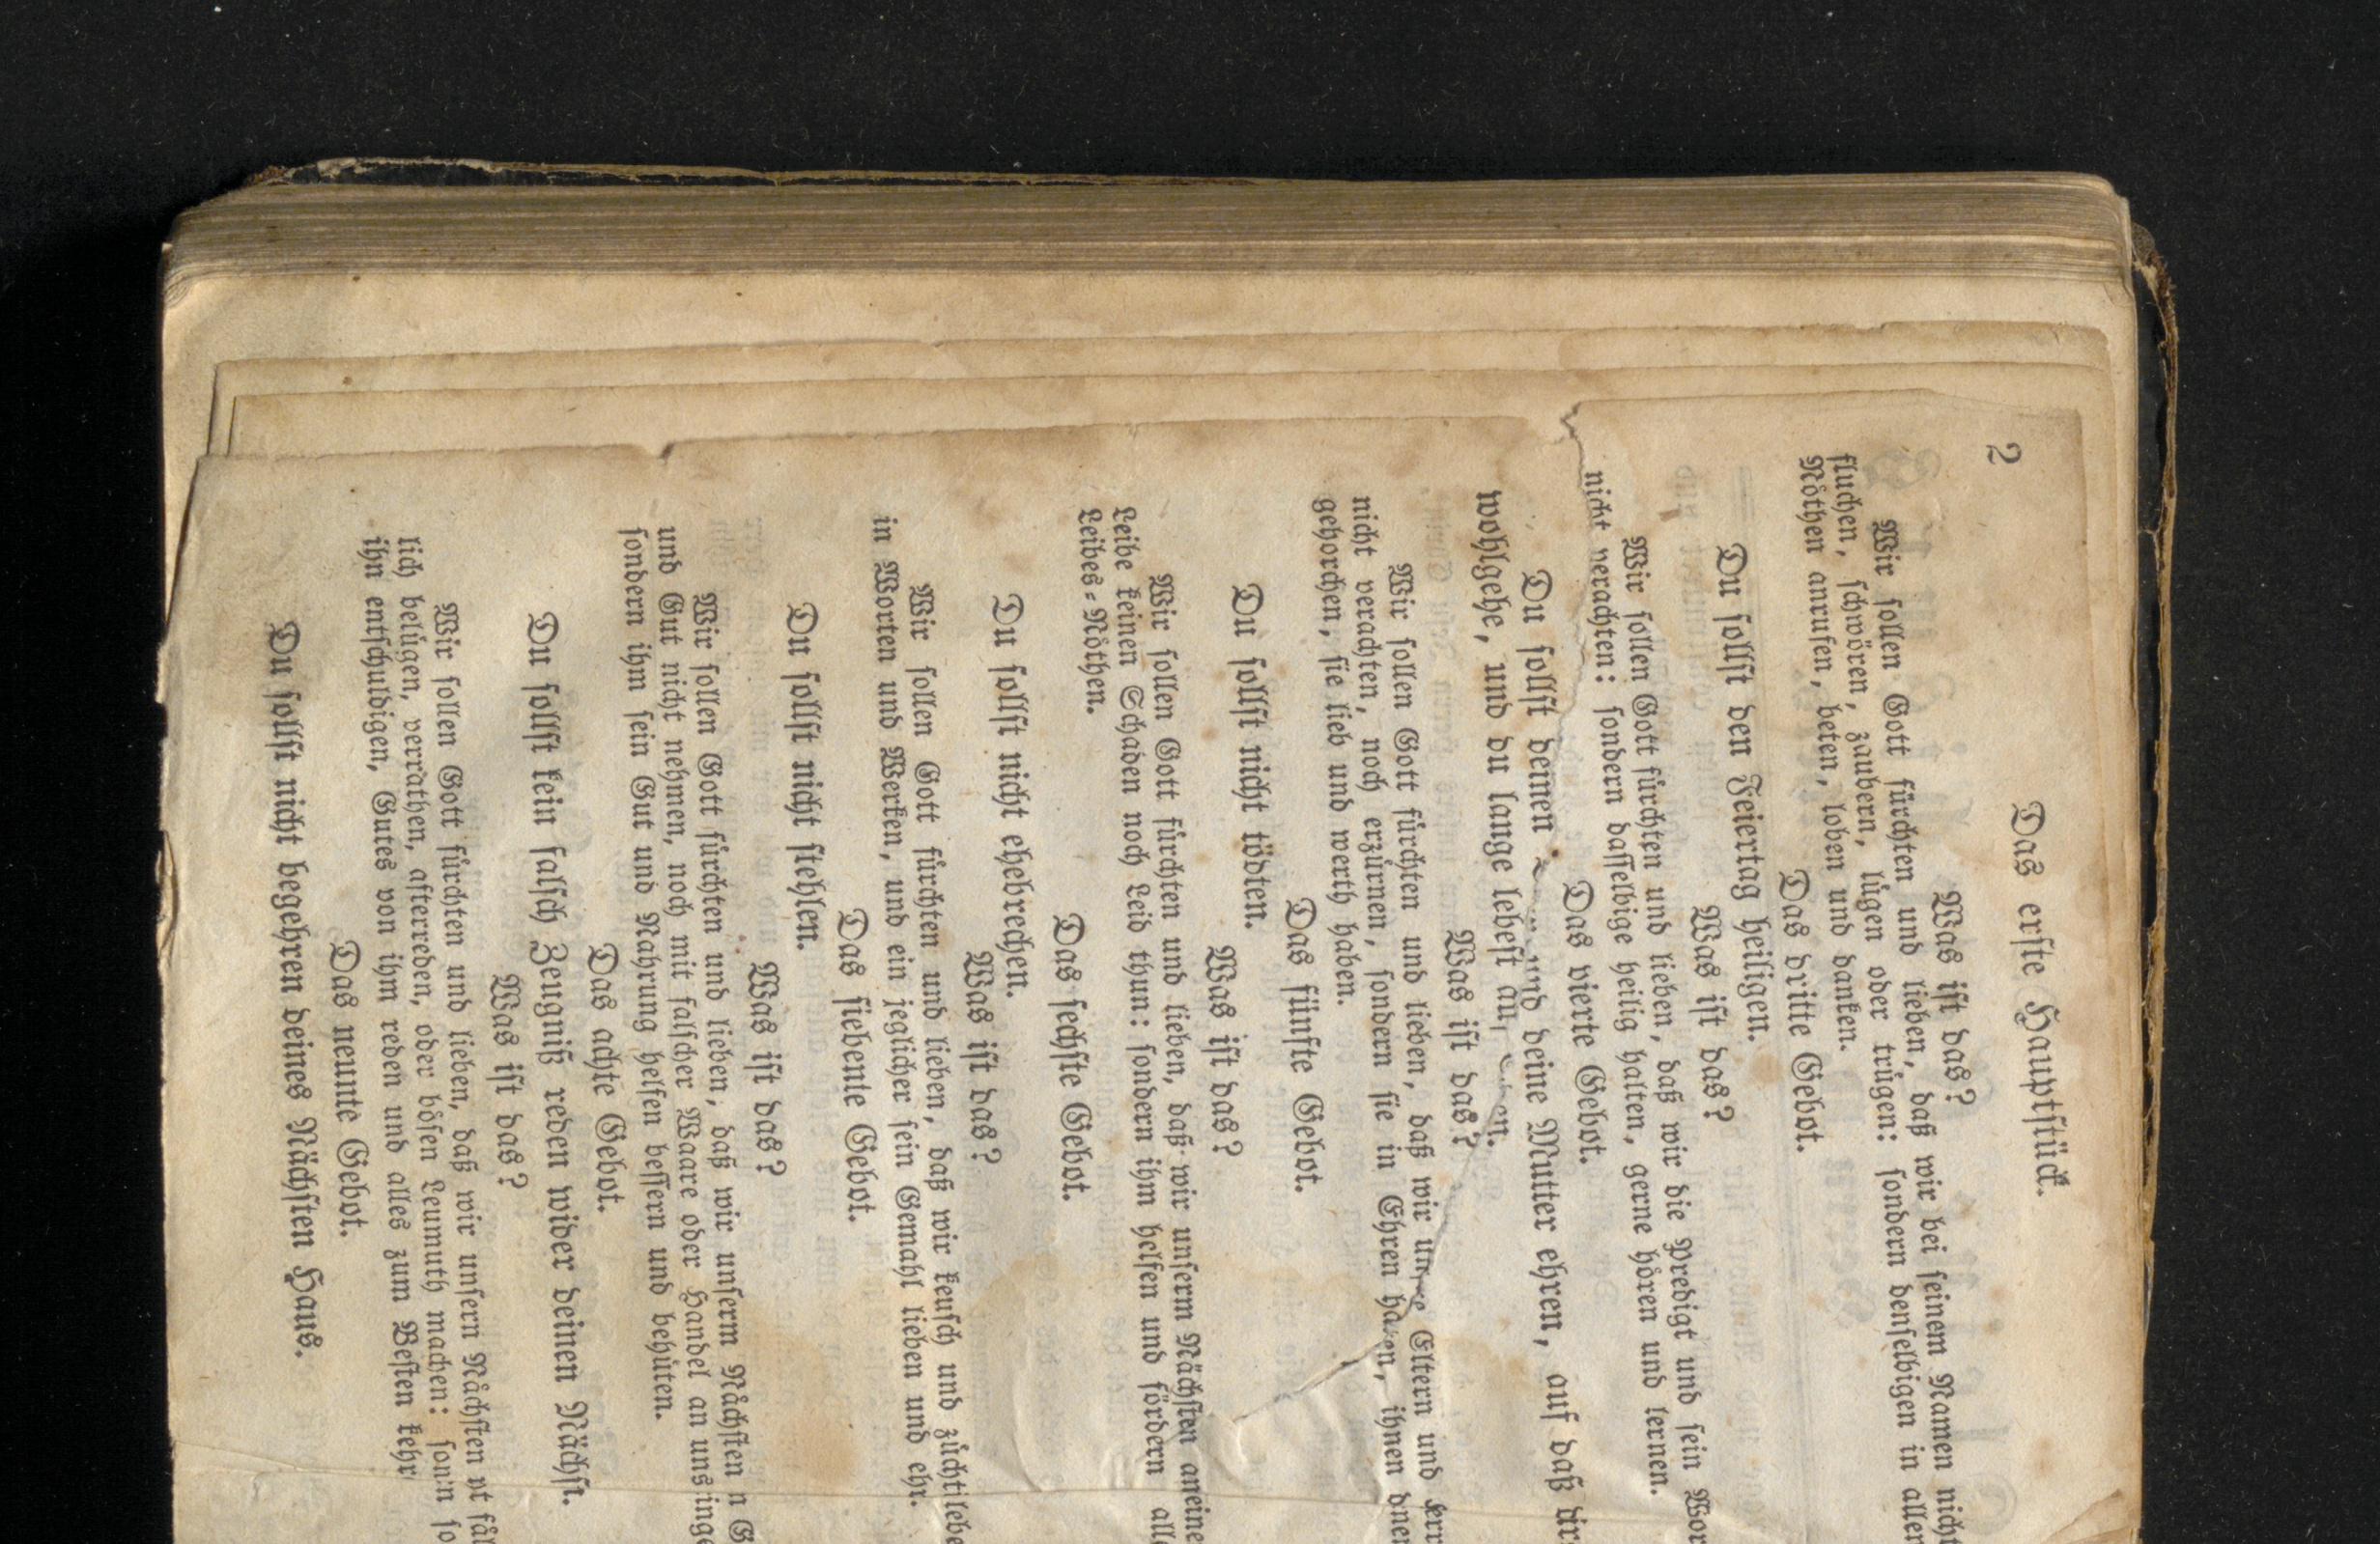 2
Das erste Hauptstück.
Was ist das?
Wir sollen Gott fürchten und lieben, daß wir bei seinem Namen nicht
fluchen, schwören, zaubern, lügen oder trügen: sondern denselbigen in allen
Nöthen anrufen, beten, loben und danken.
Das dritte Gebot.
Du sollst den Feiertag heiligen.
Was ist das?
Wir sollen Gott fürchten und lieben, daß wir die Predigt und sein Wor
nicht verachten: sondern dasselbige heilig halten, gerne hören und lernen.
Das vierte Gebot.
Du sollst deinen und deine Mutter ehren, auf daß dir
wohlgehe, und du lange lebest auf
Was ist das?
Wir sollen Gott fürchten und lieben, daß wir Eltern und
nicht verachten, noch erzürnen, sondern sie in Ehren ihnen
gehorchen, sie lieb und werth haben.
Das fünfte Gebot.
Du sollst nicht tödten.
Was ist das?
Wir sollen Gott fürchten und lieben, daß wir unserm Nächsten
Leibe keinen Schaden noch Leid thun: sondern ihm helfen und fördern
Leibes-Nöthen.
Das sechste Gebot.
Du sollst nicht ehebrechen.
Was ist das?
Wir sollen Gott fürchten und lieben, daß wir keusch und
in Worten und Werken, und ein jeglicher sein Gemahl lieben und
Das siebente Gebot.
Du sollst nicht stehlen.
Was ist das?
Wir sollen Gott fürchten und lieben, daß wir unserm Nächsten
und Gut nicht nehmen, noch mit falscher Waare oder Handel an uns
sondern ihm sein Gut und Nahrung helfen bessern und behüten.
Das achte Gebot.
Du sollst kein falsch Zeugniß reden wider deinen Nächst.
Was ist das?
Wir sollen Gott fürchten und lieben, daß wir unsern Nächsten
lich belügen, verrathen, afterreden, oder bösen Leumuth machen:
ihn entschuldigen, Gutes von ihm reden und alles zum Besten kehr
Das neunte Gebot.
Du sollst nicht begehren deines Nächsten Haus.